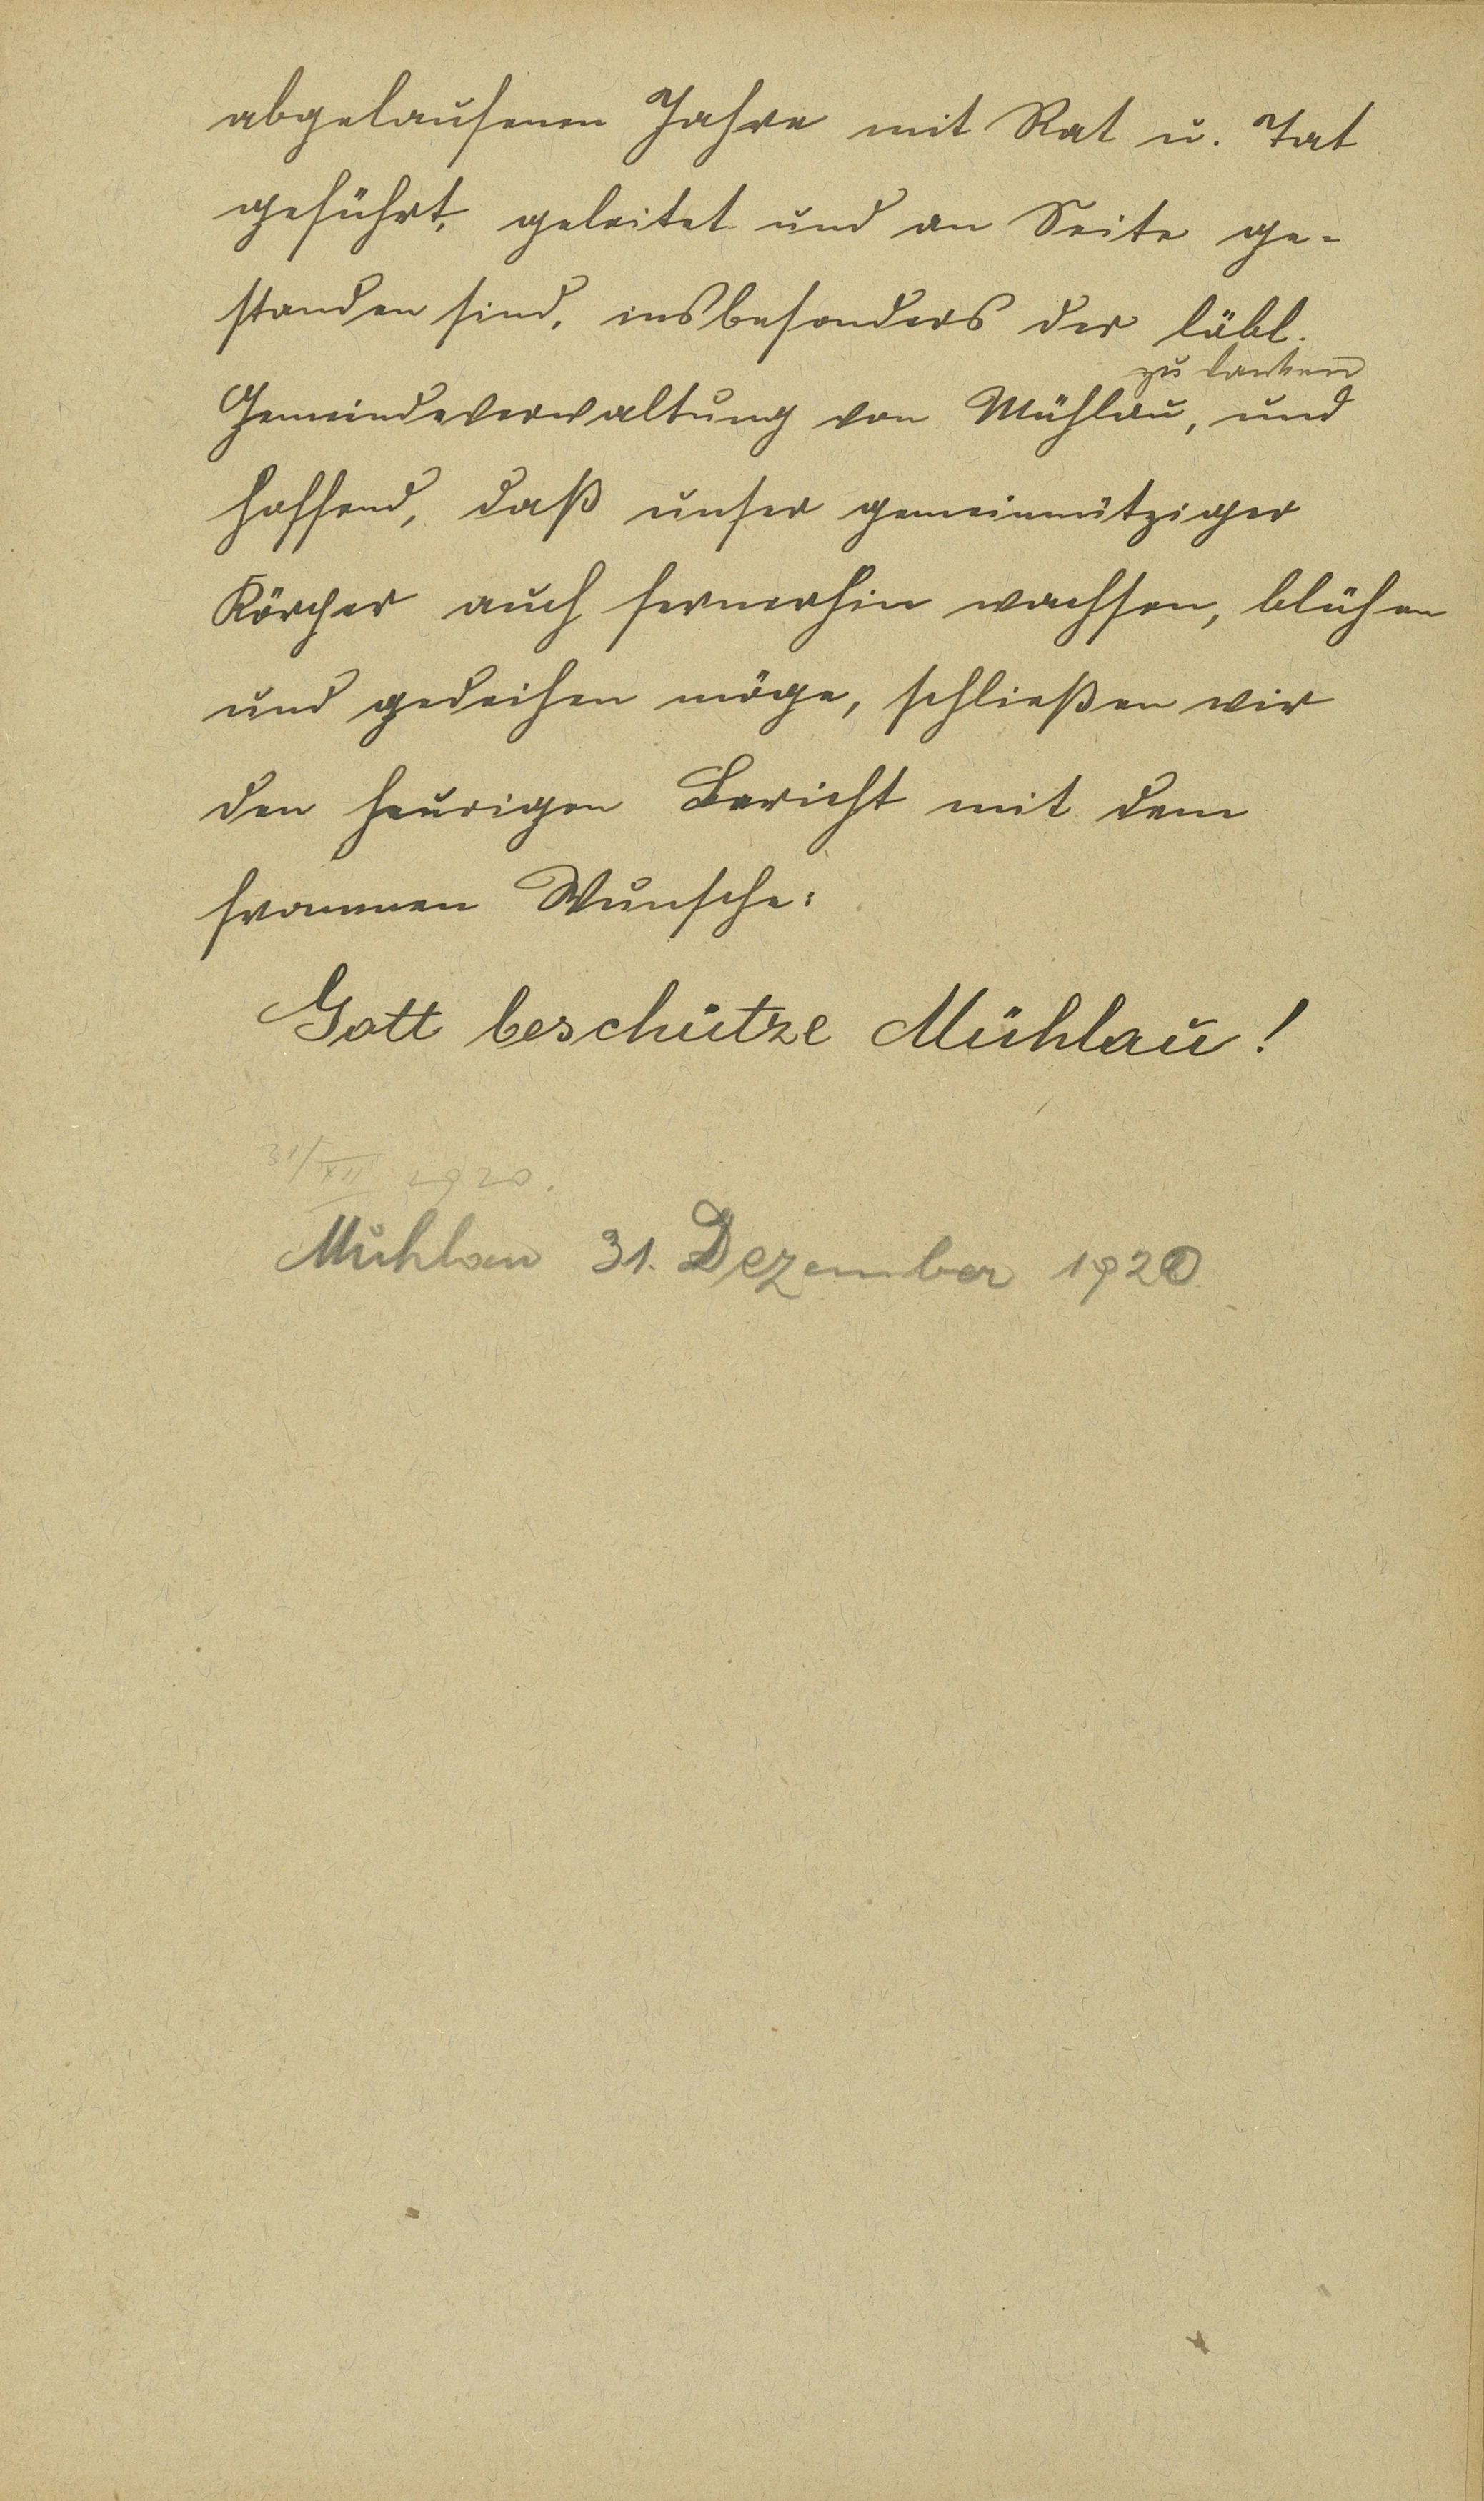 abgelaufenen Jahre mit Rat u. Tat
geführt, geleitet und an Seite ge-
standen sind, insbesonders der löbl.
zu danken
Gemeindeverwaltung von Mühlau, und
hoffend, daß unser gemeinnütziger
Körper auch fernerhin wachsen, blühen
und gedeihen möge, schließen wir
den heurigen Bericht mit dem
frommen Wunsche:
Gott beschütze Mühlau!
31/XII 1920.
Mühlau 31. Dezember 1920